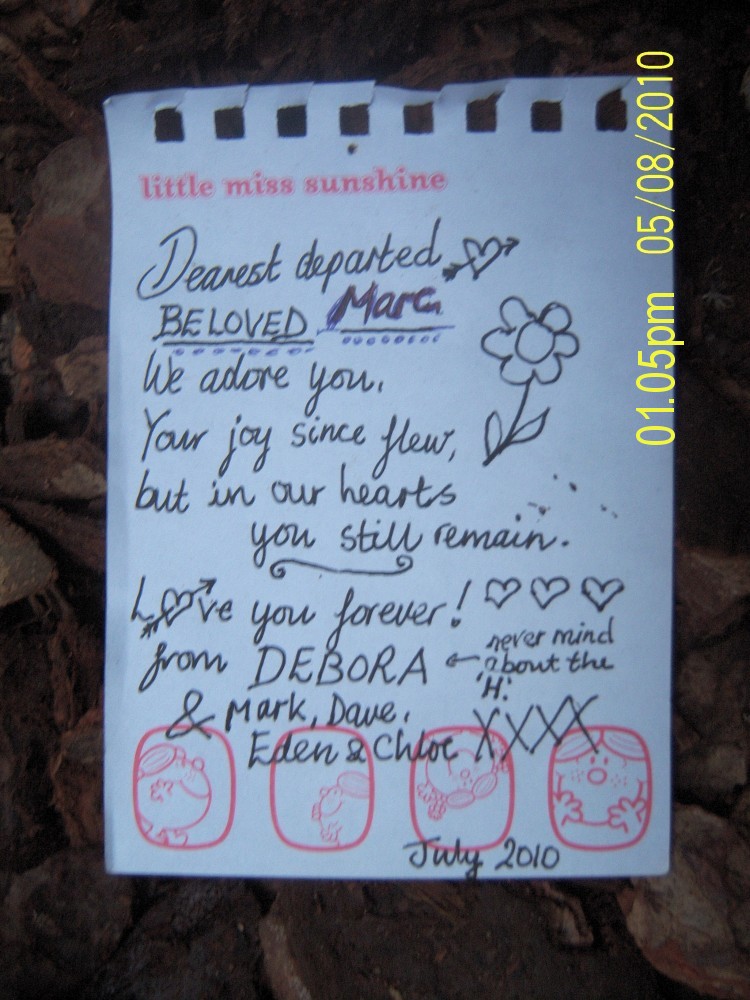 little miss sunshine
Dearest departed
BELOVED Marc.
We adore you.
Your joy since flew,
but in our hearts
you still remain.
Love you forever!
from DEBORA ← never mind
about the
'H'.
& Mark, Dave,
Eden & Chloe XXXX
July 2010
01.05pm 05/08/2010